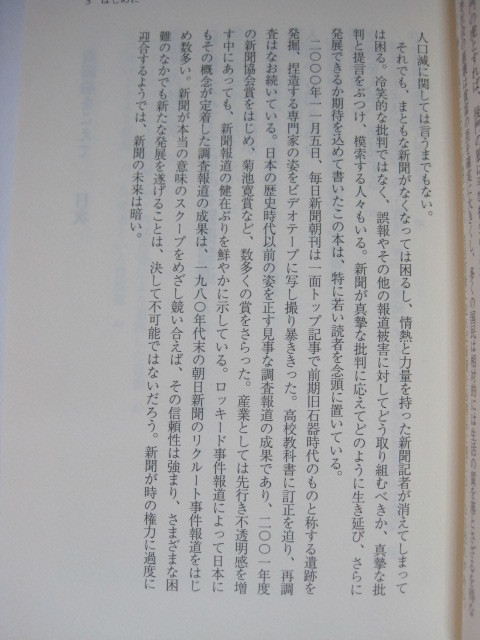 3 はじめに
人口減に関しては言うまでもない。
それでも、まともな新聞がなくなっては困るし、情熱と力量を持った新聞記者が消えてしまって
は困る。冷笑的な批判ではなく、誤報やその他の報道被害に対してどう取り組むべきか、真摯な批
判と提言をぶつけ、模索する人々もいる。新聞が真摯な批判に応えてどのように生き延び、さらに
発展できるか期待を込めて書いたこの本は、特に若い読者を念頭に置いている。
二〇〇〇年一一月五日、毎日新聞朝刊は一面トップ記事で前期旧石器時代のものと称する遺跡を
発掘、捏造する専門家の姿をビデオテープに写し撮り暴ききった。高校教科書に訂正を迫り、再調
査はなお続いている。日本の歴史時代以前の姿を正す見事な調査報道の成果であり、二〇〇一年度
の新聞協会賞をはじめ、菊池寛賞など、数多くの賞をさらった。産業としては先行き不透明感を増
す中にあっても、新聞報道の健在ぶりを鮮やかに示している。ロッキード事件報道によって日本に
もその概念が定着した調査報道の成果は、一九八〇年代末の朝日新聞のリクルート事件報道をはじ
め数多い。新聞が本当の意味のスクープをめざし競い合えば、その信頼性は強まり、さまざまな困
難のなかでも新たな発展を遂げることは、決して不可能ではないだろう。新聞が時の権力に過度に
迎合するようでは、新聞の未来は暗い。